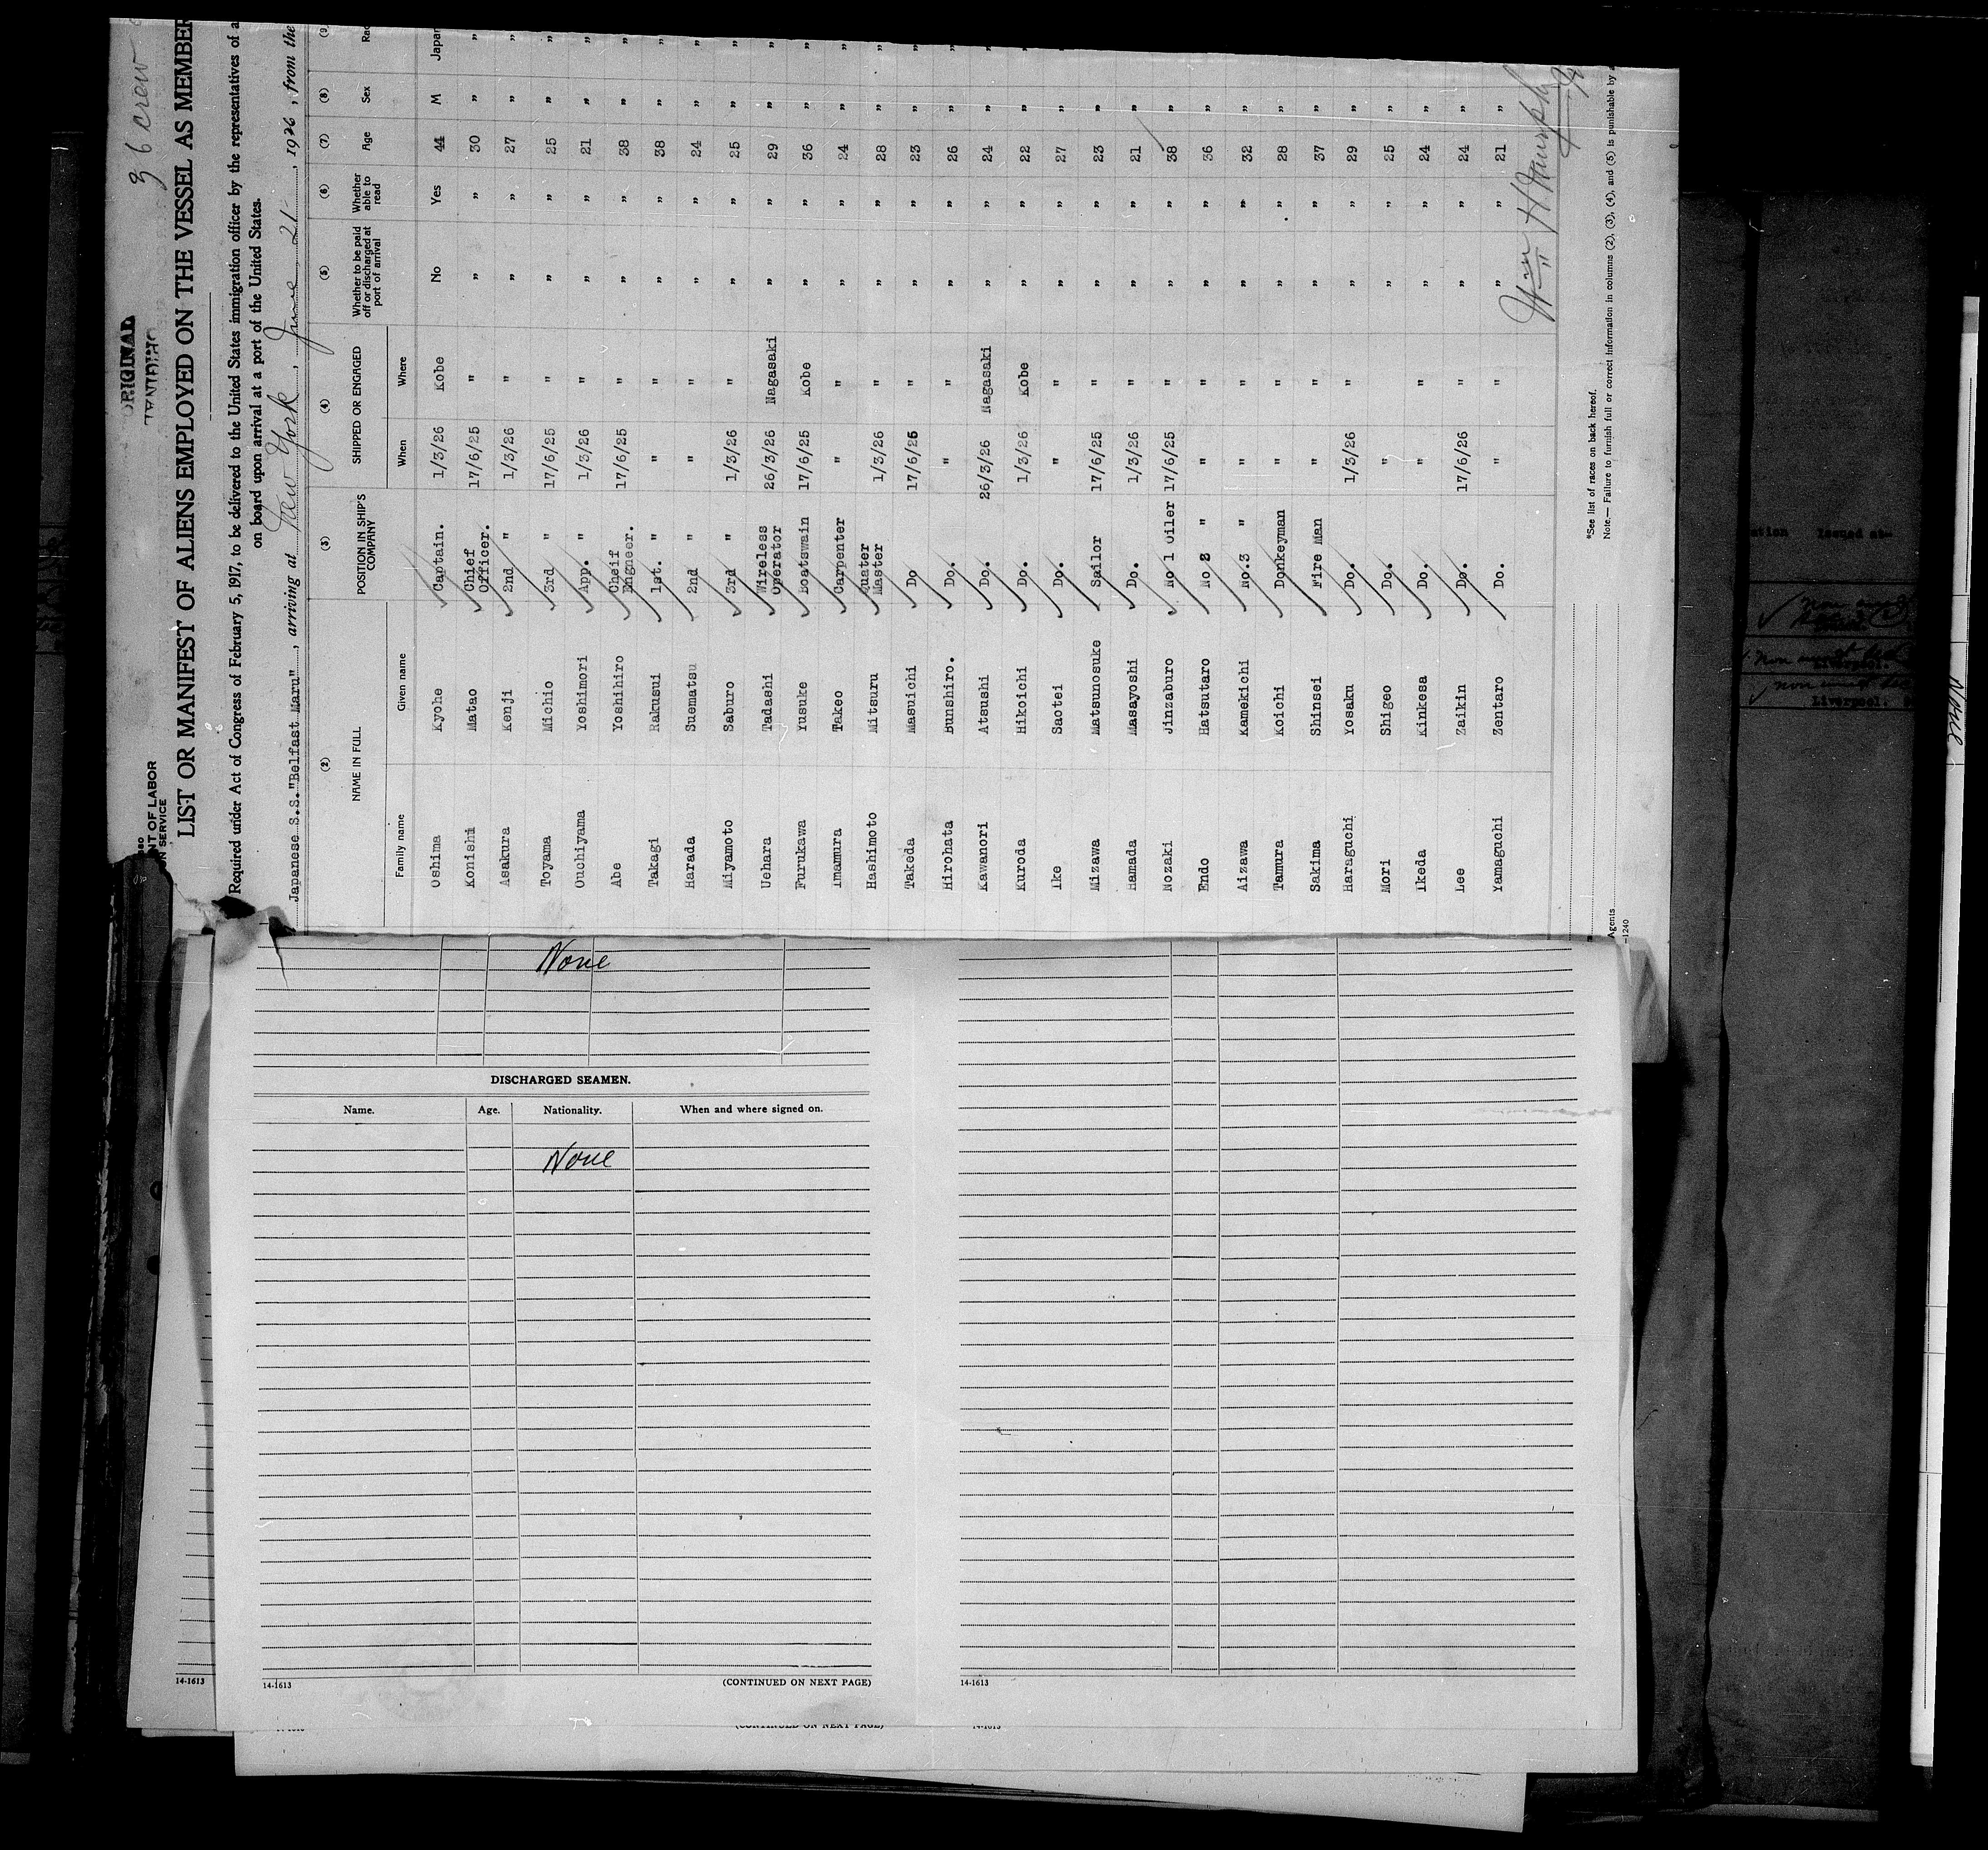 36 crew
ORIGINAL
LANDING
NT OF LABOR
N SERVICE
LIST OR MANIFEST OF ALIENS EMPLOYED ON THE VESSEL AS MEMBER
Required under Act of Congress of February 5, 1917, to be delivered to the United States immigration officer by the representatives of a
on board upon arrival at a port of the United States.
Japanese S.S."Belfast Maru", arriving at New York, June 21, 1926, from the
(2) (3) (4) (5) (6) (7) (8) (9)
NAME IN FULL POSITION IN SHIP'S COMPANY SHIPPED OR ENGAGED Whether to be paid off or discharged at port of arrival Whether able to read Age Sex Rac
Family name Given name When Where
Oshima Kyohe Captain. 1/3/26 Kobe No Yes 44 M Japan
Konishi Matao Chief Officer. 17/6/25 " " " 30 " "
Asakura Kenji 2nd " 1/3/26 " " " 27 " "
Toyama Michio 3rd " 17/6/25 " " " 25 " "
Ouchiyama Yoshimori App. " 1/3/26 " " " 21 " "
Abe Yoshihiro Cheif Engneer. 17/6/25 " " " 38 " "
Takagi Rakusui 1st. " " " " " 38 " "
Harada Suematsu 2nd " " " " " 24 " "
Miyamoto Saburo 3rd " 1/3/26 " " " 25 " "
Uehara Tadashi Wireless Operator 26/3/26 Nagasaki " " 29 " "
Furukawa Yusuke Boatswain 17/6/25 Kobe " " 36 " "
Imamura Takeo Carpenter " " " " 24 " "
Hashimoto Mitsuru Quater Master 1/3/26 " " " 28 " "
Takeda Masuichi Do 17/6/25 " " " 23 " "
Hirohata Bunshiro. Do. " " " " 26 " "
Kawanori Atsushi Do. 26/3/26 Nagasaki " " 24 " "
Kuroda Hikoichi Do. 1/3/26 Kobe " " 22 " "
Ike Saotei Do. " " " " 27 " "
Mizawa Matsunosuke Sailor 17/6/25 " " " 23 "
Hamada Masayoshi Do. 1/3/26 " " " 21 "
Nozaki Jinzaburo No 1 Oiler 17/6/25 " " " 38 "
Endo Hatsutaro No 2 " " " " " 36 "
Aizawa Kamekichi No.3 " " " " " 32 "
Tamura Koichi Donkeyman " " " " 28 "
Sakima Shinsei Fire Man " " " " 37 "
Haraguchi Yosaku Do. 1/3/26 " " " 29 "
Mori Shigeo Do. " " " 25 "
Ikeda Kinkesa Do. " " " " 24 "
Lee Zaikin Do. 17/6/26 " " " 24 "
Yamaguchi Zentaro Do. " " " " 21 "
Wm H
*See list of races on back hereof.
Note.— Failure to furnish full or correct information in columns (2), (3), (4), and (5) is punishable by a
Agents
—1240
None
DISCHARGED SEAMEN.
Name. Age. Nationality. When and where signed on.
None
14-1613
14-1613 (CONTINUED ON NEXT PAGE)
14-1613
(CONTINUED ON NEXT PAGE) 14-1613
Issued at-
Liverpool.
None